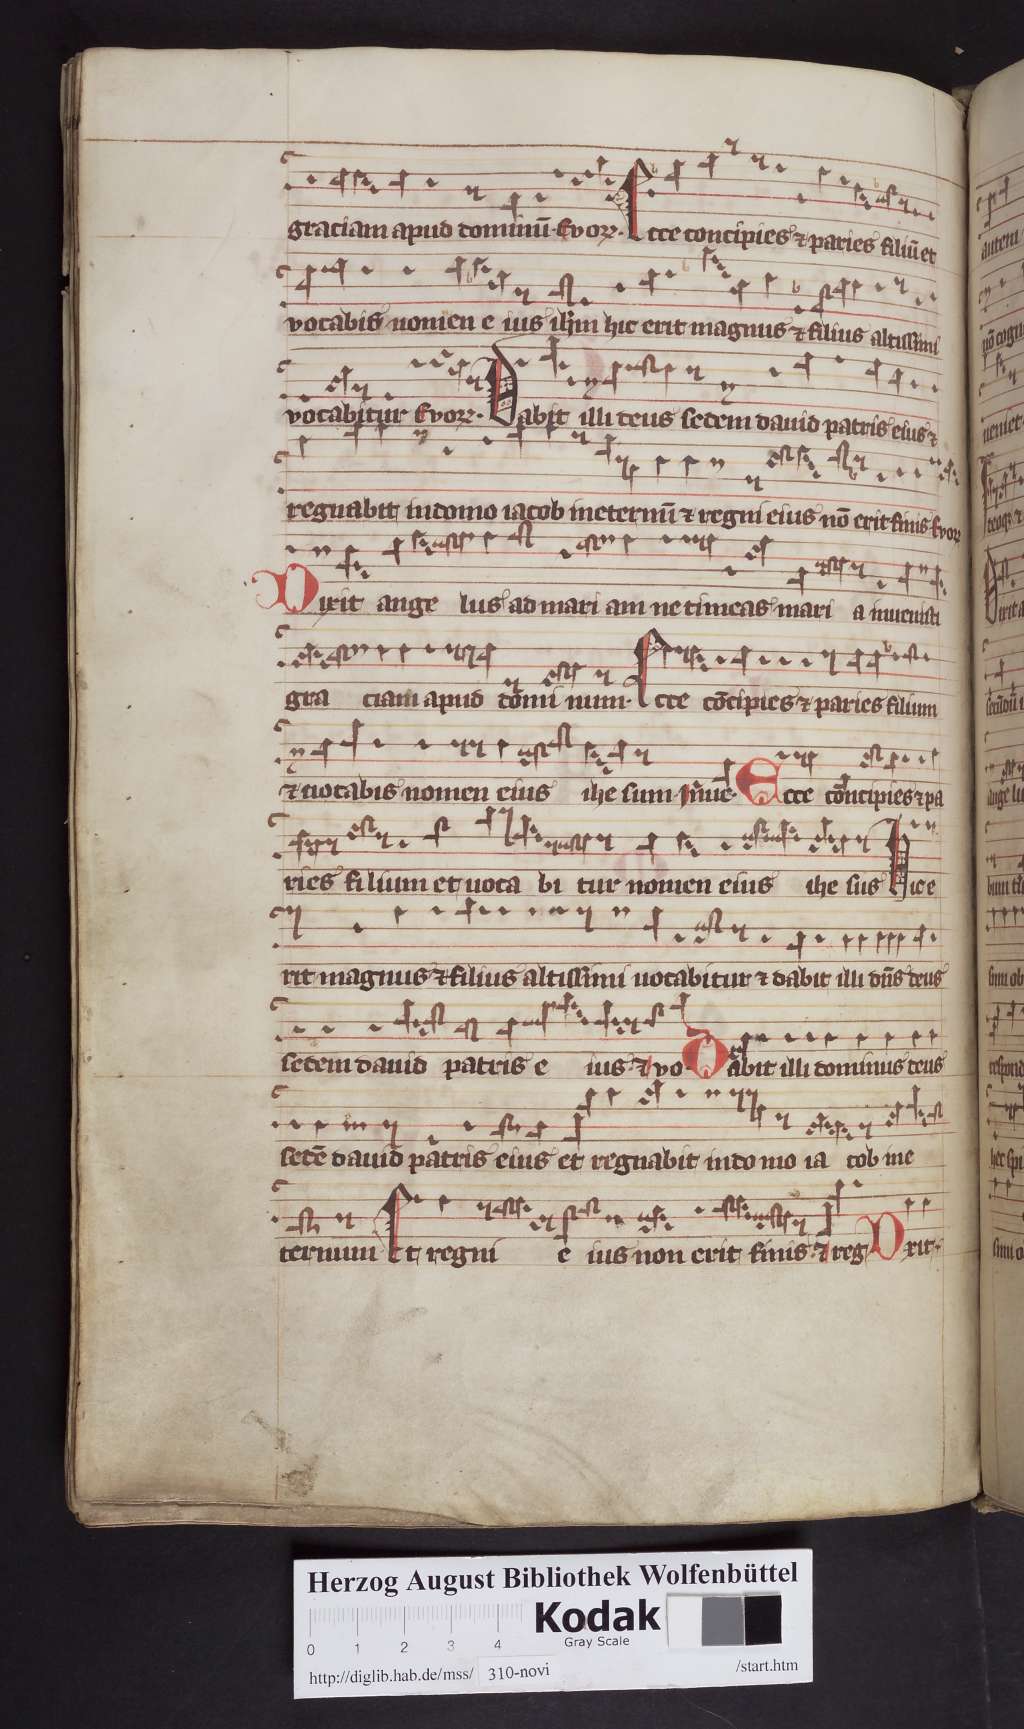 graciam apud dominū· Evovẹ· Ecce concipies ⁊ paries filiū et
vocabis nomen e ius ih̄m hic erit magnus ⁊ filius altissimi
vocabitur Evovẹ· Dabit illi deus sedem dauid patris eius ⁊
regnabit in domo iacob in eternū ⁊ regni eius nō erit finis
Dixit ange lus ad mari am ne timeas mari a inuenisti
gra ciam apud domi num· Ecce cōcipies ⁊ paries filium
⁊ uocabis nomen eius ihe sum Ecce cōncipies ⁊ pa
ries filium et uoca bi tur nomen eius ihe sus Hic e
rit magnus ⁊ filius altissimi uocabitur ⁊ dabit illi dn̄s deus
sedem dauid patris e ius· ⁊ vo Dabit illi dominus deus
sedē dauid patris eius et regnabit in do mo ia cob in e
ternum Et regni e ius non erit finis· ⁊ reg Dixit·
autem
ange lu
respond
Herzog August Bibliothek Wolfenbüttel
Kodak
Gray Scale
0 1 2 3 4
http://diglib.hab.de/mss/ 310-novi /start.htm